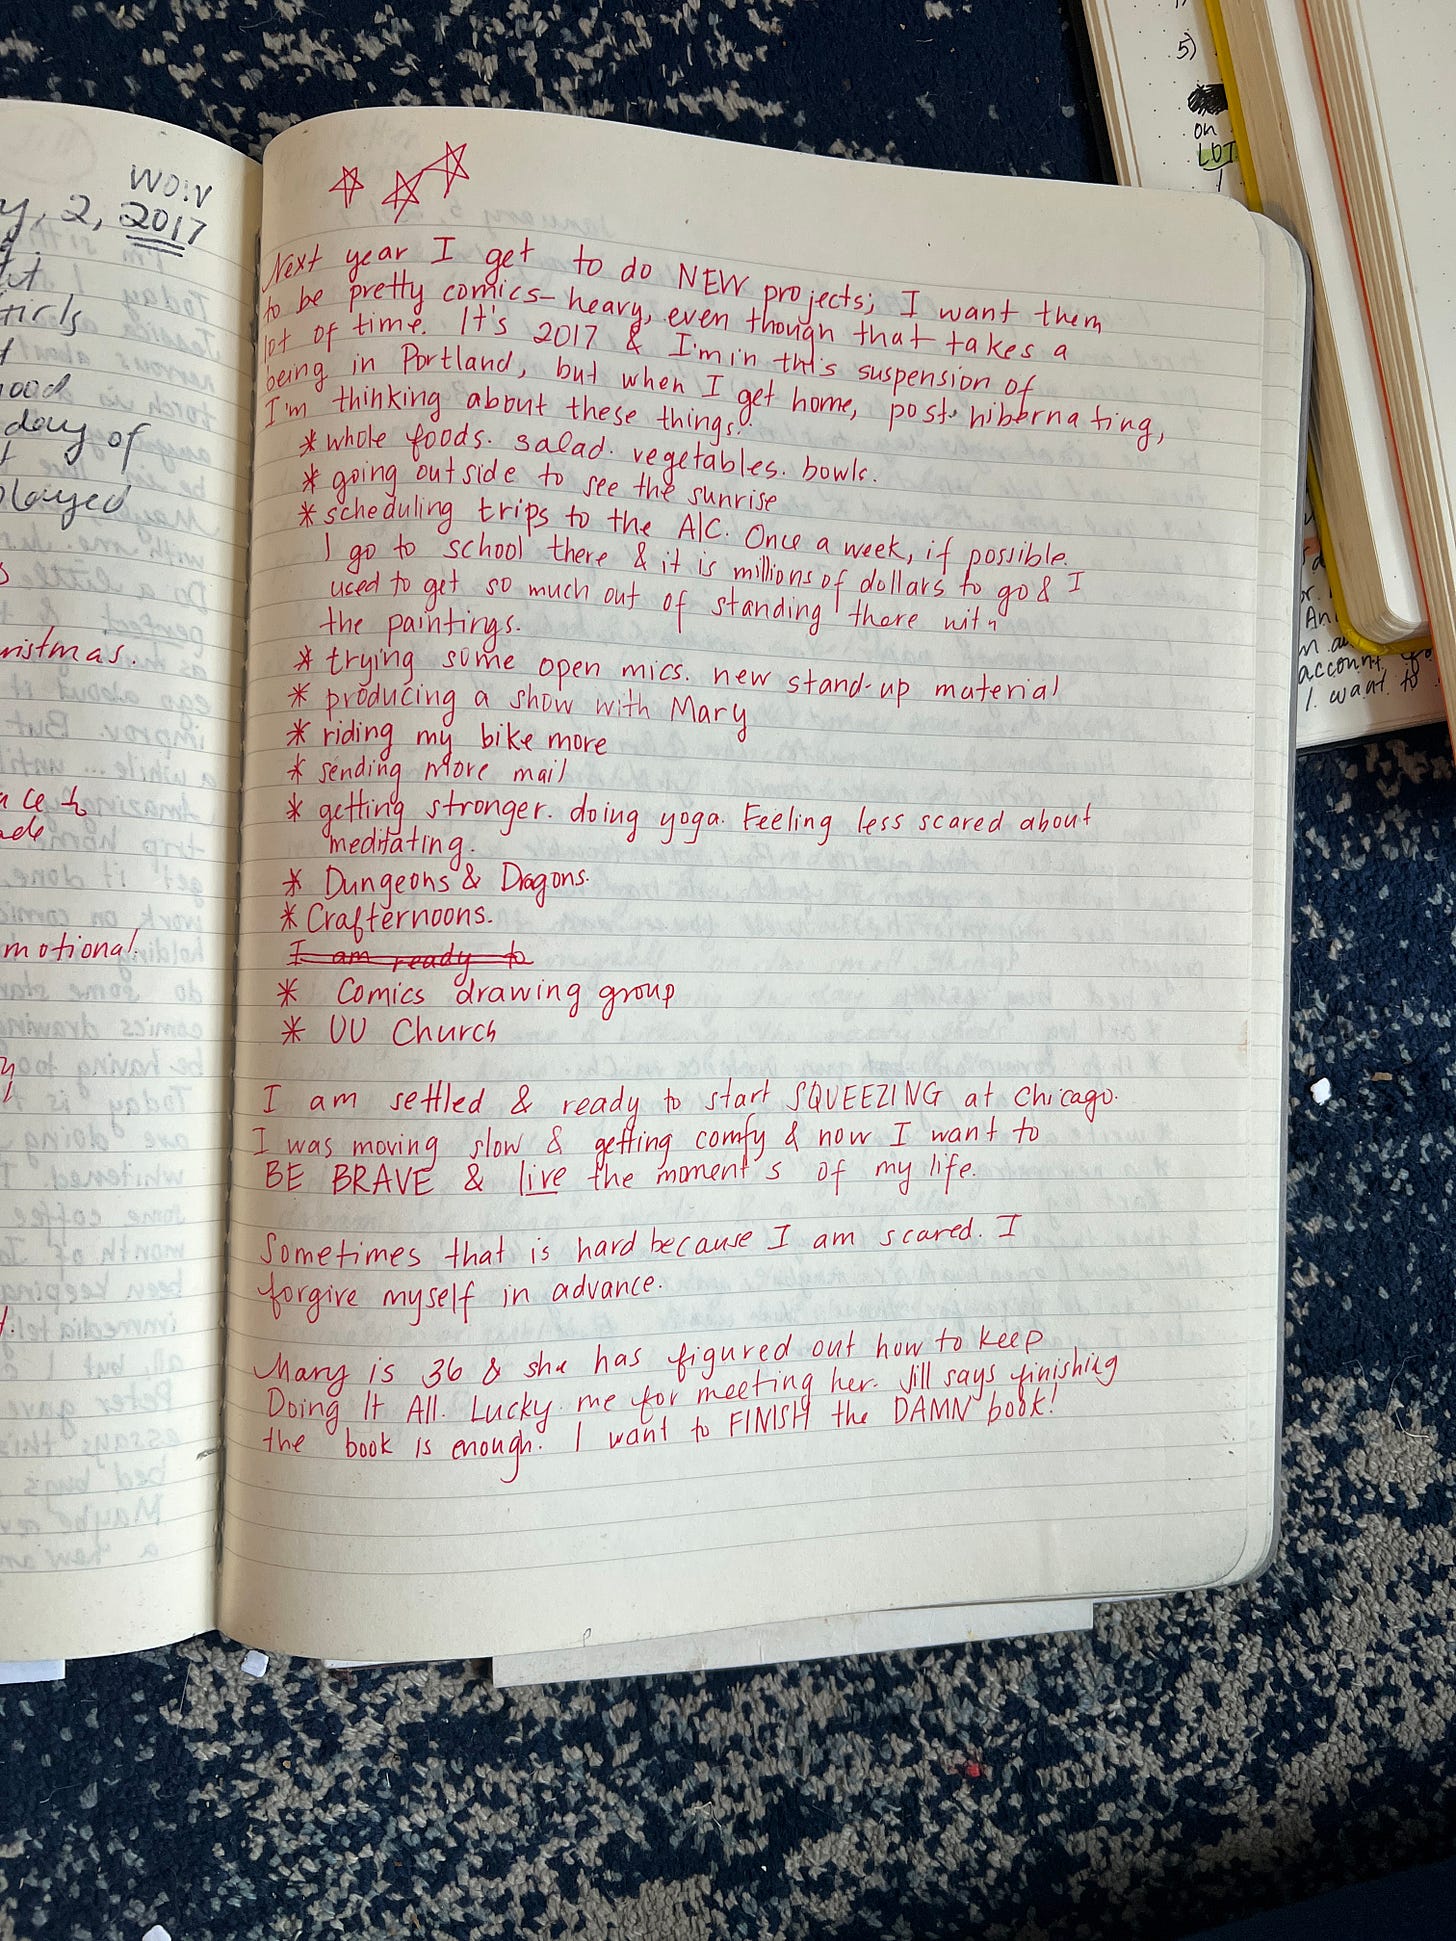 WOW
2, 2017
day of
played
ristmas.
motional.
Next year I get to do NEW projects; I want them
to be pretty comics-heavy, even though that takes a
lot of time. It's 2017 & I'm in this suspension of
being in Portland, but when I get home, post-hibernating,
I'm thinking about these things:
* whole foods. salad. vegetables. bowls.
* going outside to see the sunrise
* scheduling trips to the AIC. Once a week, if possible.
I go to school there & it is millions of dollars to go & I
used to get so much out of standing there with
the paintings.
* trying some open mics. new stand-up material
* producing a show with Mary
* riding my bike more
* sending more mail
* getting stronger. doing yoga. Feeling less scared about
meditating.
* Dungeons & Dragons.
* Crafternoons.
I am ready to
* Comics drawing group
* UU Church
I am settled & ready to start SQUEEZING at Chicago.
I was moving slow & getting comfy & now I want to
BE BRAVE & live the moments of my life.
Sometimes that is hard because I am scared. I
forgive myself in advance.
Mary is 36 & she has figured out how to keep
Doing It All. Lucky me for meeting her. Jill says finishing
the book is enough. I want to FINISH the DAMN book!
5)
on
account
I want to